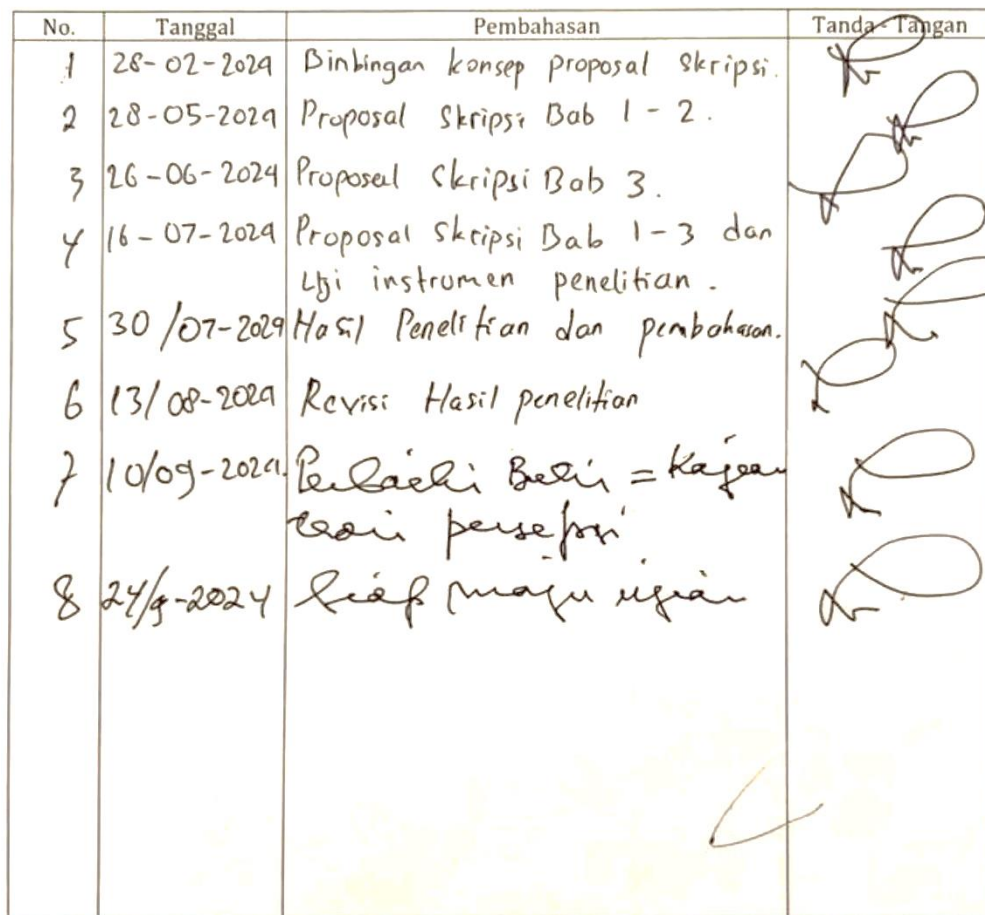 No. Tanggal Pembahasan Tanda - Tangan
1 28-02-2024 Binbingan konsep proposal skripsi.
2 28-05-2024 Proposal Skripsi Bab 1-2.
3 26-06-2024 Proposal Skripsi Bab 3.
4 16-07-2024 Proposal Skripsi Bab 1-3 dan
Uji instrumen penelitian.
5 30/07-2024 Hasil Penelitian dan pembahasan.
6 13/08-2024 Revisi Hasil penelitian
7 10/09-2024. = Kajian
teori persepsi
8 24/9-2024 Siap maju ujian